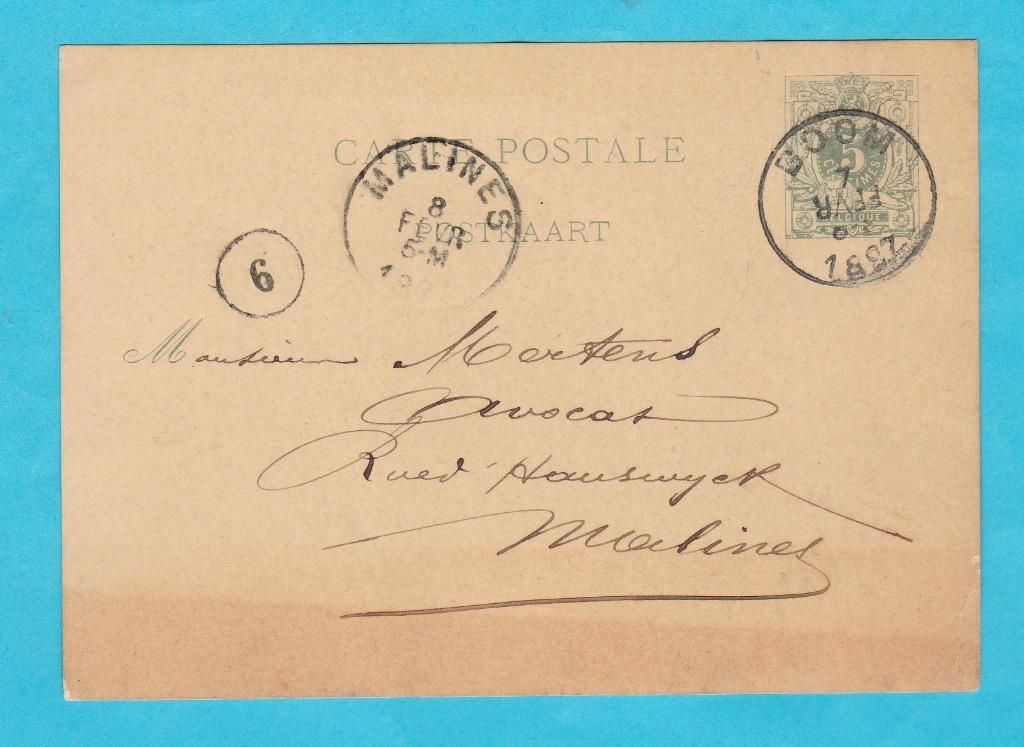 CARTE POSTALE
POSTKAART
5
CENTIMES
BELGIQUE
BOOM
7
FEVR
1887
MALINES
8
FEVR
5-M
6
Monsieur Mertens
Avocat
Rue d'Hanswyck
Malines